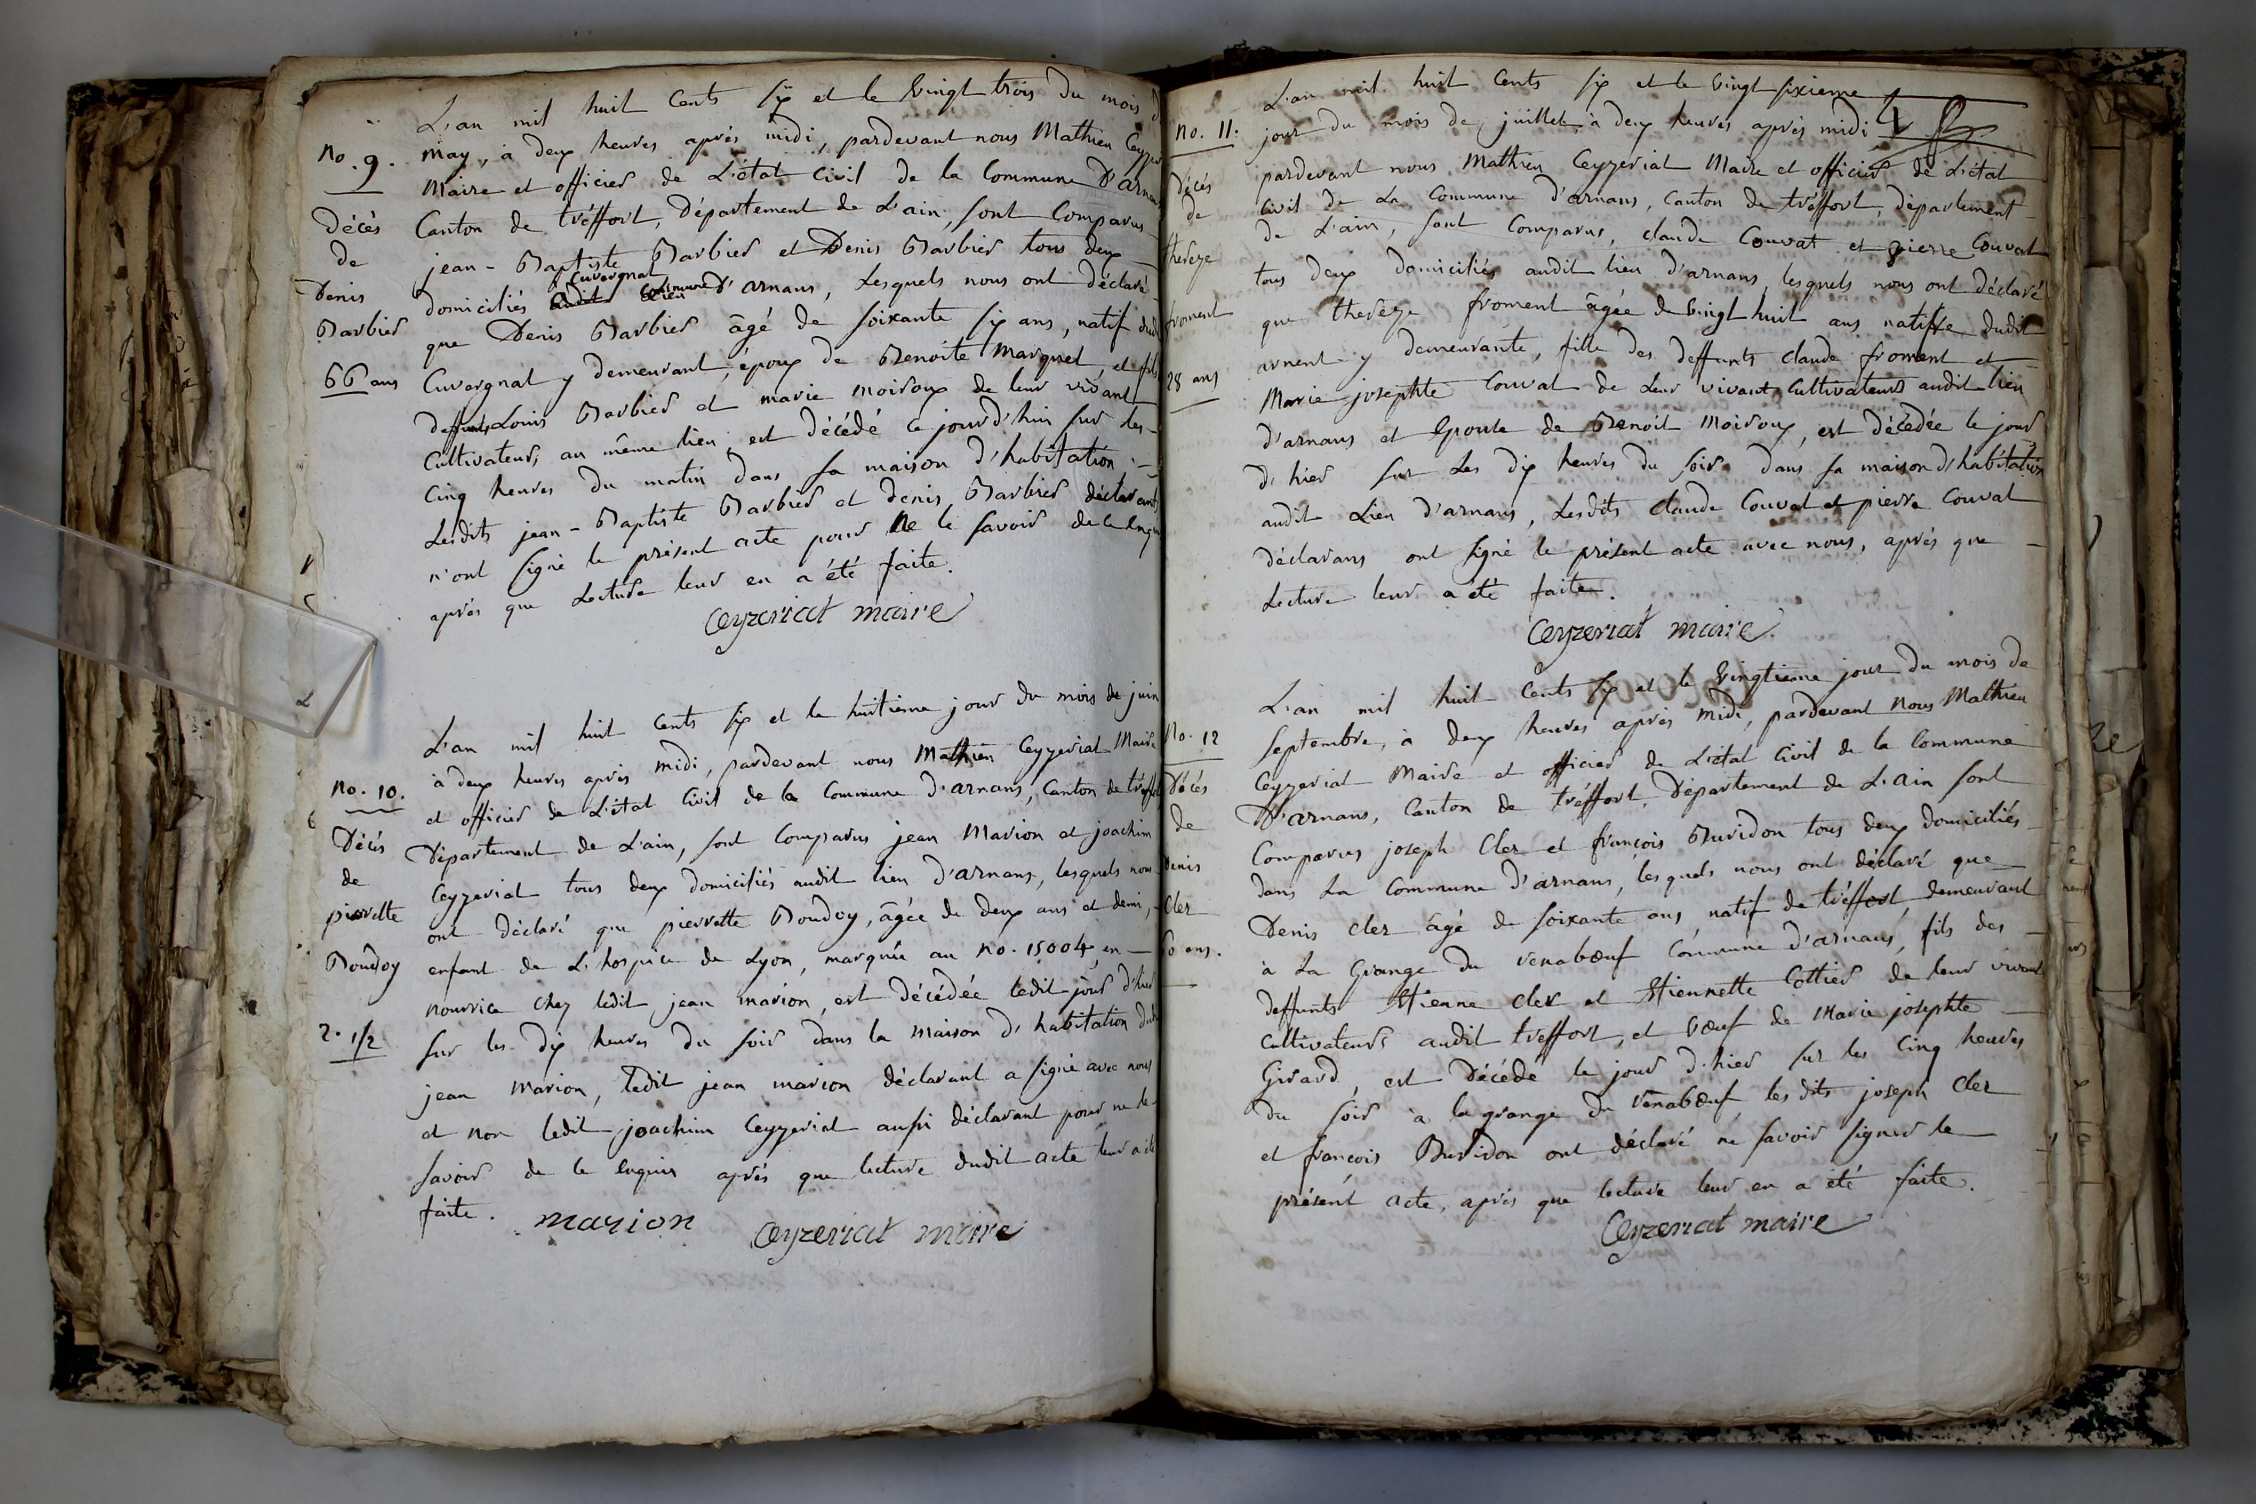 L'an mil huit cents six et le vingt trois du mois d
No. 9. may, à deux heures après midi, pardevant nous Mathieu Ceyzer
Maire et officier de L'état Civil de la Commune D'arnans
Décès Canton de tréffort, Département de L'ain, sont Comparus
de jean-Baptiste Barbier et Denis Barbier tous deux
Cuvergnat commune
Denis domiciliés D'arnans, Lesquels nous ont déclaré
Barbier que Denis Barbier âgé de soixante six ans, natif dud
66 ans Cuvergnat y demeurant, époux de Benoite Marquet, et fils
deffunts Louis Barbier et marie moiroux de leur vivant
Cultivateurs, au même lieu, est décédé ce jourd'hui sur les
Cinq heures du matin dans sa maison d'habitation,
Lesdits jean-Baptiste Barbier et denis Barbier déclarant
n'ont signé le présent acte pour ne le savoir de ce enqui
après que Lecture leur en a été faite.
Ceyzeriat maire
L'an mil huit cents six et le huitieme jour du mois de juin
No. 10. à deux heures après midi, pardevant nous Mathieu Ceyzeriat Maire
et officier de L'état Civil de la Commune D'arnans, Canton de tréffort
Décès Département de L'ain, sont Comparus jean Marion et joachim
de Ceyzeriat tous deux domiciliés audit lieu D'arnans, lesquels nous
pierrette ont déclaré que pierrette Boudoy, âgée de deux ans et demi,
Boudoy enfant de L'hospice de Lyon, marquée au no. 15004, en
nourrice chez ledit jean marion, est décédée ledit jour d'hier
2. 1/2 sur les dix heures du soir dans la maison d'habitation dud
jean Marion, ledit jean marion déclarant a signé avec nous
et non ledit joachim Ceyzeriat aussi déclarant pour ne le
savoir de le enquis après que lecture dudit acte leur a été
faite. marion Ceyzeriat maire
L'an mil huit cents six et le vingt sixieme
No. 11. jour du mois de juillet, à deux heures après midi
pardevant nous Mathieu Ceyzeriat Maire et officier de L'état
décès Civil de La Commune d'arnans, Canton de tréffort, département
de de L'ain, sont Comparus, claude Couvat et pierre Couvat
thereze tous deux domiciliés audit lieu d'arnans, lesquels nous ont déclaré
froment que thereze froment âgée de vingt huit ans native dudit
arnent y demeurante, fille des deffunts claude froment et
28 ans Marie josephte Couvat de Leur vivant Cultivateurs audit lieu
d'arnans et Epouse de Benoit Moiroux, est décédée le jour
d'hier sur Les dix heures du soir dans sa maison d'habitation
audit Lieu d'arnans, Lesdits claude Couvat et pierre Couvat
déclarans ont signé le présent acte avec nous, après que
Lecture leur a été faite.
Ceyzeriat maire
L'an mil huit cents six et le vingtieme jour du mois de
No. 12 septembre, à deux heures après midi, pardevant nous Mathieu
Ceyzeriat Maire et officier de L'état Civil de la Commune
Décès D'arnans, Canton de tréffort, Département de L'ain sont
de Comparus joseph Cler et françois Buvidon tous deux domiciliés
denis dans La Commune d'arnans, lesquels nous ont déclaré que
Cler Denis cler âgé de soixante ans, natif de tréffort, demeurant
60 ans. à La Grange du venabœuf Commune d'arnans, fils des
deffunts Etienne cler et Etiennette Cottier de leur vivant
Cultivateurs audit treffort, et vœuf de Marie josephte
Girard, est Décédé le jour d'hier sur les Cinq heures
du soir à la grange du venabœuf, les dits joseph Cler
et françois Buvidon ont déclaré ne savoir signer le
présent acte, après que lecture leur en a été faite.
Ceyzeriat maire